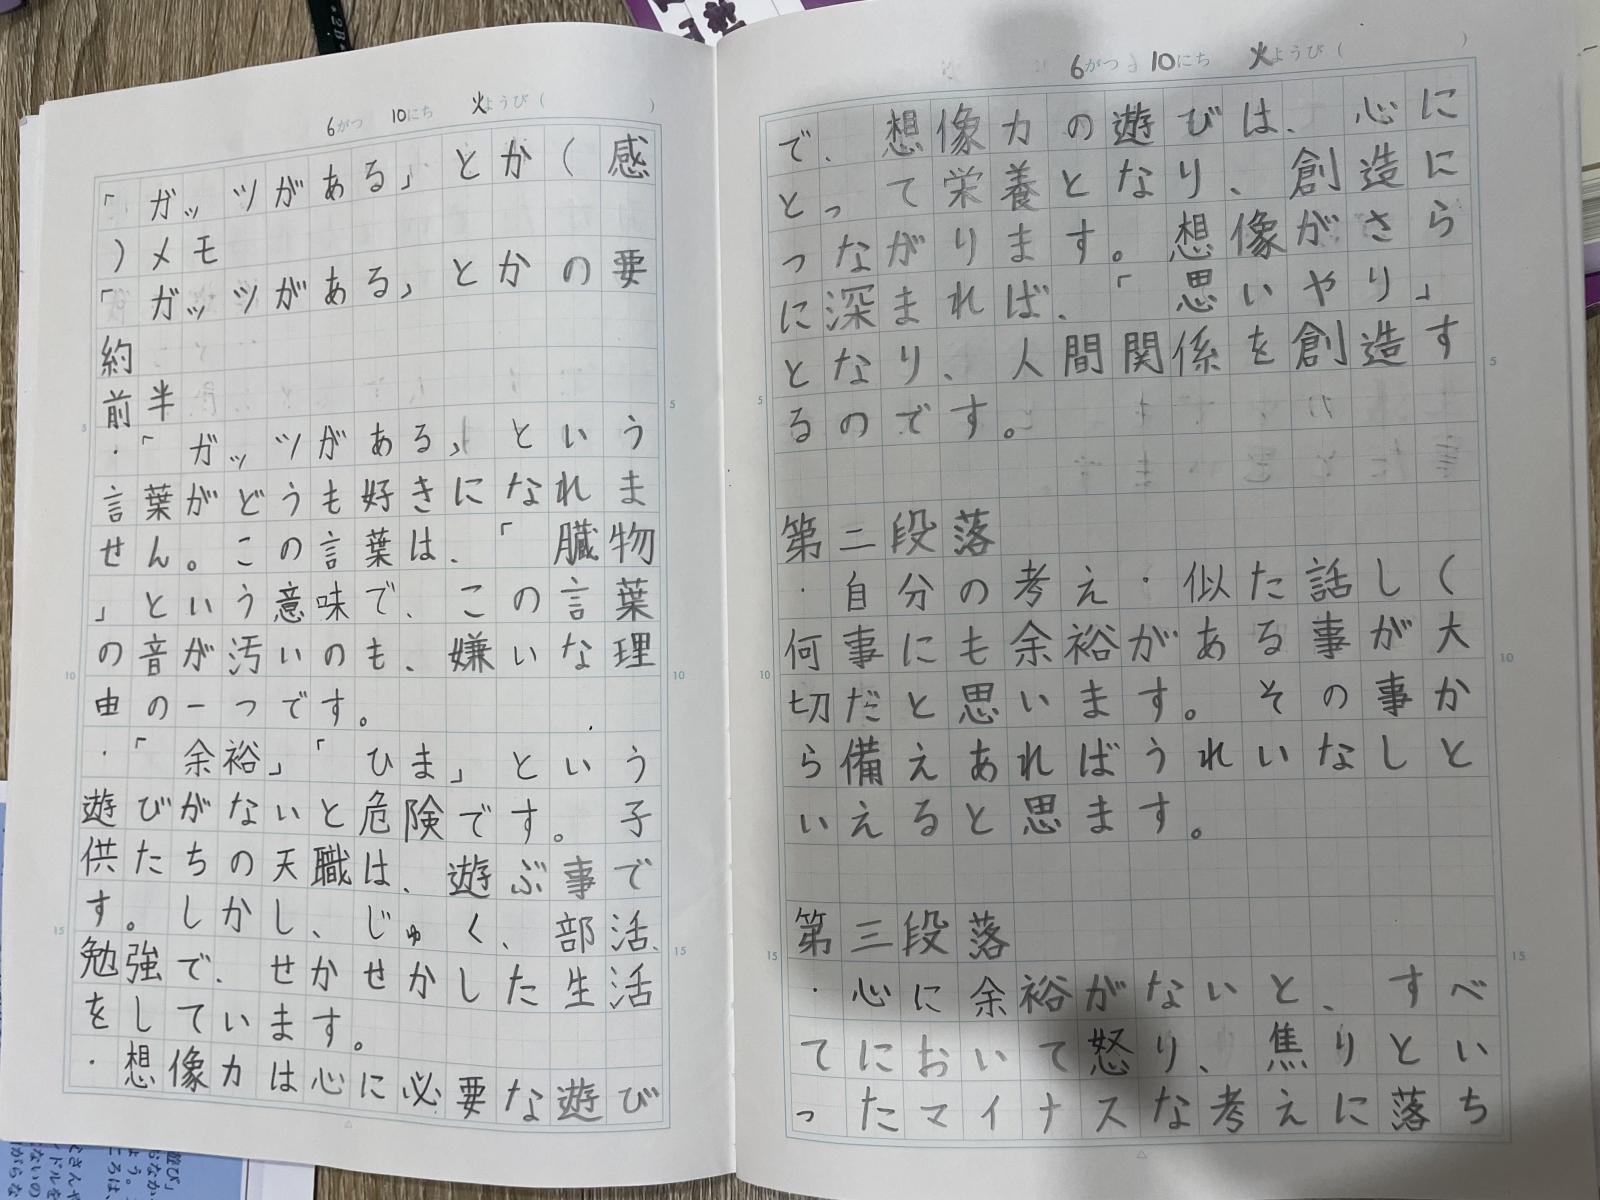 6がつ 10にち 火ようび( )
「ガッツがある」とかく感
)メモ
「ガッツがある」とかの要
約
前半
・「ガッツがある」という
言葉がどうも好きになれま
せん。この言葉は、「臓物
」という意味で、この言葉
の音が汚いのも、嫌いな理
由の一つです。
・「余裕」「ひま」という
遊びがないと危険です。子
供たちの天職は、遊ぶ事で
す。しかし、じゅく、部活、
勉強で、せかせかした生活
をしています。
・想像力は心に必要な遊び
5
10
15
5
10
15
6がつ 10にち 火ようび( )
で、想像力の遊びは、心に
とって栄養となり、創造に
つながります。想像がさら
に深まれば、「思いやり」
となり、人間関係を創造す
るのです。
第二段落
・自分の考え・似た話しく
何事にも余裕がある事が大
切だと思います。その事か
ら備えあればうれいなしと
いえると思ます。
第三段落
・心に余裕がないと、すべ
てにおいて怒り、焦りとい
ったマイナスな考えに落ち
5
10
15
5
10
15
2B